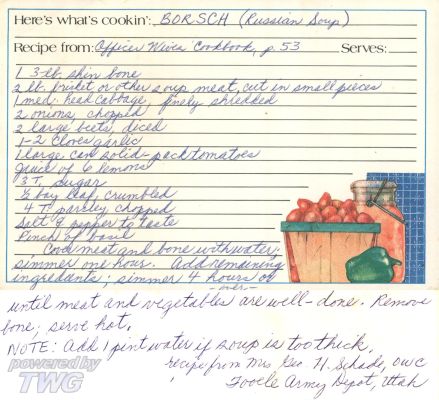 Here's what's cookin': BORSCH (Russian Soup)
Recipe from: Officers Wives Cookbook, p. 53 Serves:
1 3-lb. shin bone
2 lb. brisket or other soup meat, cut in small pieces
1 med. head cabbage, finely shredded
2 onions, chopped
2 large beets, diced
1-2 cloves garlic
1 large can solid-pack tomatoes
Juice of 6 lemons
3 T. sugar
½ bay leaf, crumbled
4 T. parsley chopped
Salt & pepper to taste
Pinch of basil
Cover meat and bone with water,
simmer one hour. Add remaining
ingredients; simmer 4 hours or
-over-
until meat and vegetables are well-done. Remove
bone; serve hot.
NOTE: Add 1 pint water if soup is too thick.
recipe from Mrs. Geo. H. Schade, OWC
Tooele Army Depot, Utah
powered by
TWG